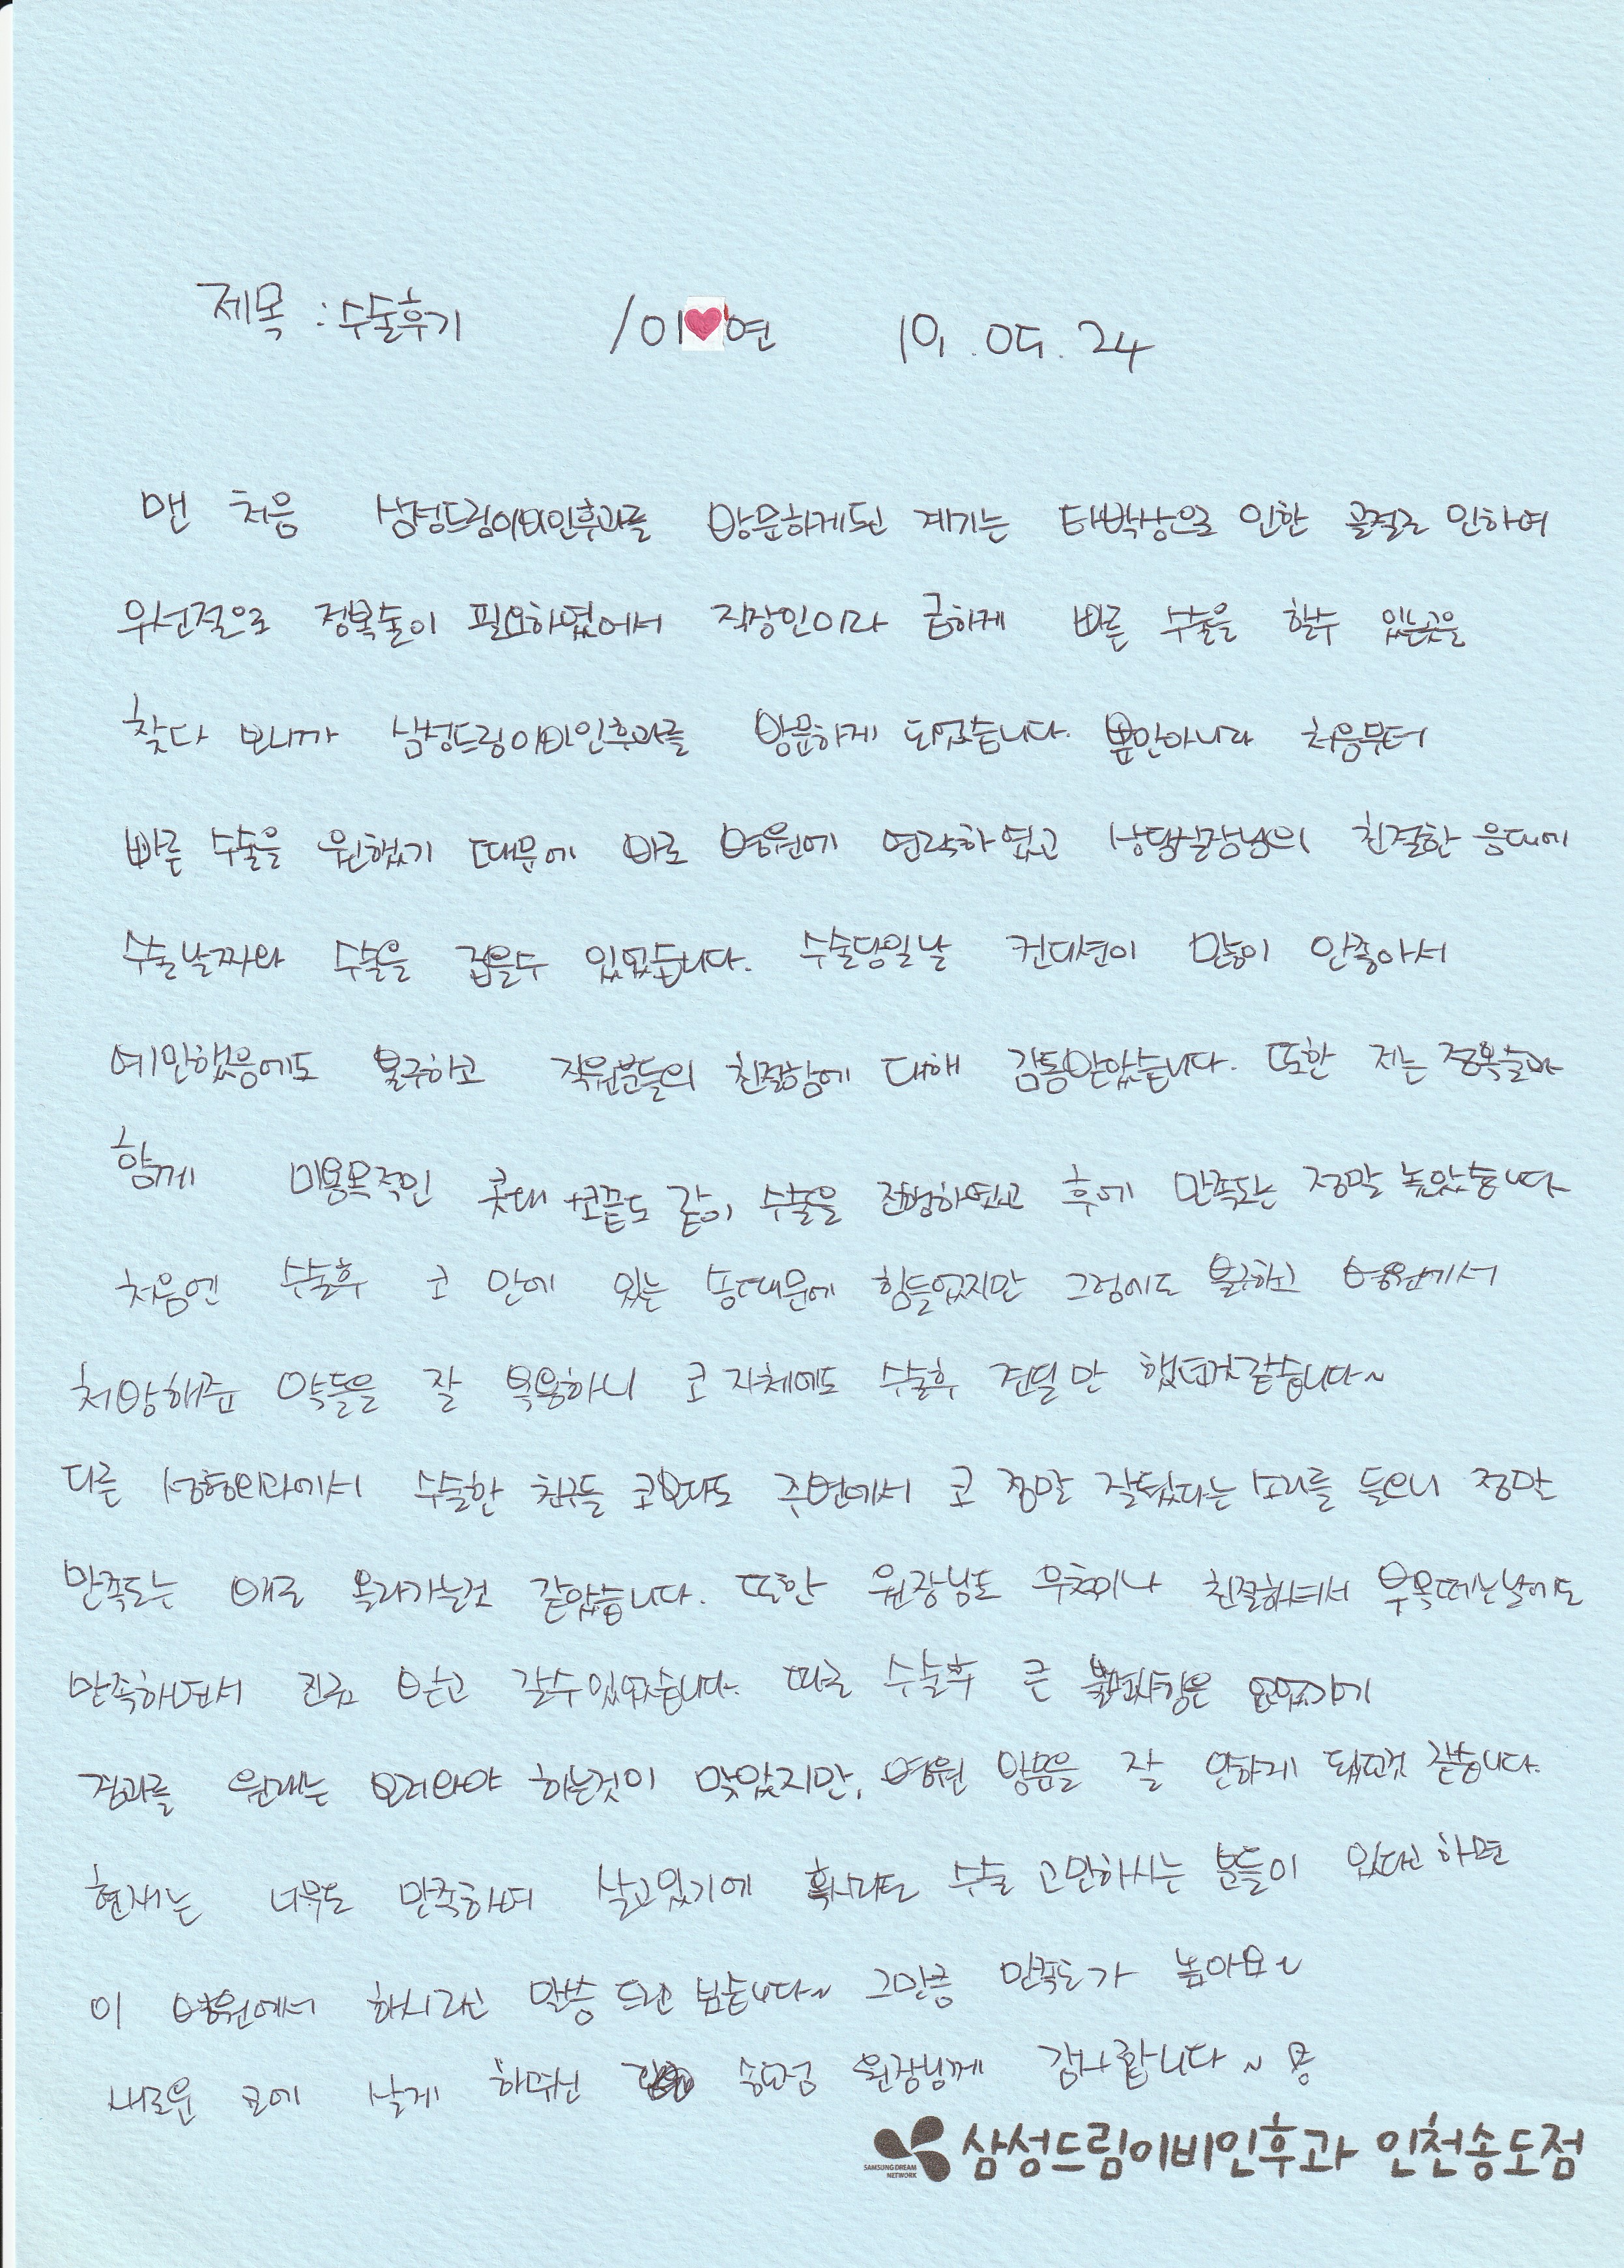 제목 : 수술후기 / 이❤연 19. 05. 24
맨 처음 삼성드림이비인후과를 방문하게된 계기는 타박상으로 인한 골절로 인하여
우선적으로 정복술이 필요하였어서 직장인이라 급하게 빠른 수술을 할수 있는곳을
찾다 보니까 삼성드림이비인후과를 방문하게 되었습니다. 뿐만아니라 처음부터
빠른 수술을 원했기 때문에 바로 병원에 연락하였고 상담실장님의 친절한 응대에
수술날짜와 수술을 잡을수 있었습니다. 수술당일날 컨디션이 많이 안좋아서
예민했음에도 불구하고 직원분들의 친절함에 대해 감동받았습니다. 또한 저는 정복술과
함께 미용목적인 콧대 +코끝도 같이 수술을 진행하였고 후에 만족도는 정말 높았습니다
처음엔 수술후 코 안에 있는 솜때문에 힘들었지만 그럼에도 불구하고 병원에서
처방해준 약들을 잘 복용하니 코 자체에도 수술후 견딜만 했던것같습니다~
다른 성형외과에서 수술한 친구들 코보다도 주변에서 코 정말 잘됐다는 소리를 들으니 정말
만족도는 배로 올라가는것 같았습니다. 또한 원장님도 무척이나 친절하셔서 부목떼는날에도
만족하면서 진료 받고 갈수있었습니다. 따로 수술후 큰 불편사항은 없었기에
경과를 원래는 보러와야 하는것이 맞았지만, 병원 방문을 잘 안하게 됐던것 같습니다.
현재는 너무도 만족하며 살고있기에 혹시라도 수술 고민하시는 분들이 있다고 하면
이 병원에서 하시라고 말씀 드리고 싶습니다~ 그만큼 만족도가 높아요~
새로운 코에 살게 해주신 송도점 원장님께 감사합니다~
SAMSUNG DREAM NETWORK 삼성드림이비인후과 인천송도점